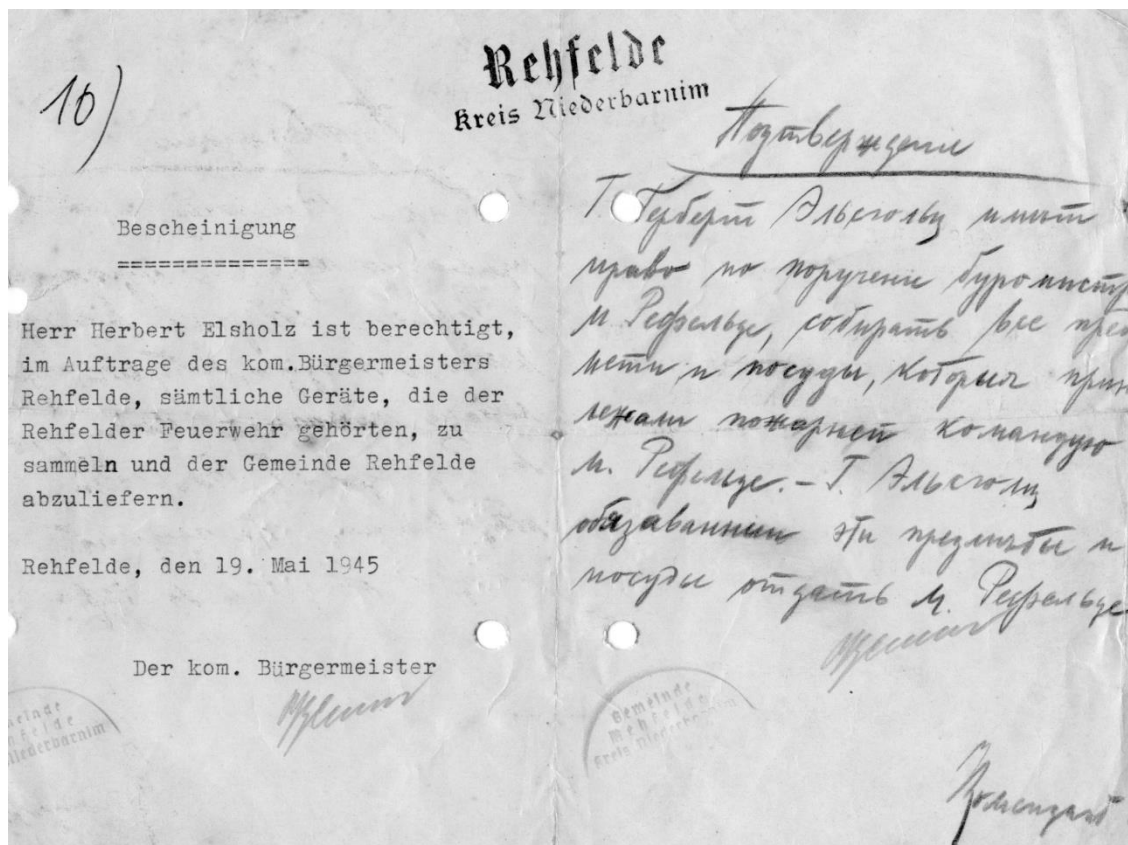 10)
Rehfelde
Kreis Niederbarnim
Bescheinigung
==============
Herr Herbert Elsholz ist berechtigt,
im Auftrage des kom.Bürgermeisters
Rehfelde, sämtliche Geräte, die der
Rehfelder Feuerwehr gehörten, zu
sammeln und der Gemeinde Rehfelde
abzuliefern.
Rehfelde, den 19. Mai 1945
Der kom. Bürgermeister
Подтверждение
Г. Герберт Эльсгольц имеет
право по поручение
м. Рефельде, собирать все пред
мети и посуды, которыя прин
лежали пожарней командую
м. Рефельде. – Г. Эльсгольц
эти и
посуды отдать м. Рефельде
Gemeinde
Rehfelde
Kreis Niederbarnim
Комендант